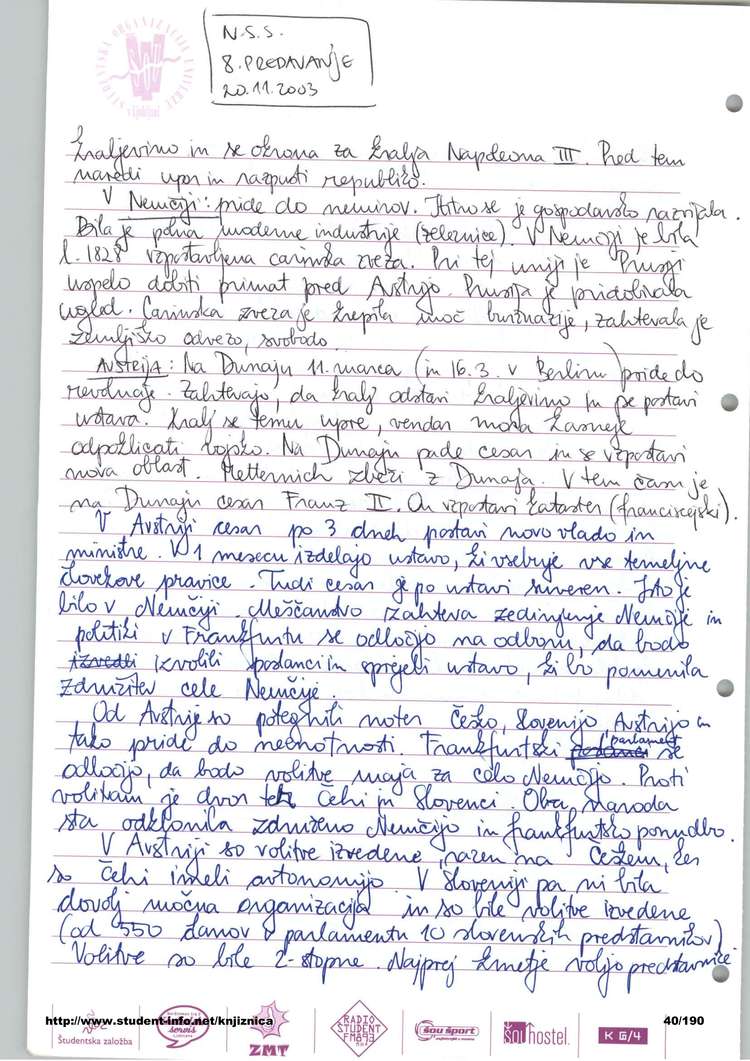 N.S.S.
8. PREDAVANJE
20.11.2003
ŠTUDENTSKA ORGANIZACIJA UNIVERZE
v Ljubljani
kraljevino in se okrona za kralja Napoleona III. Pred tem
naredi upor in razpusti republiko.
V Nemčiji: pride do nemirov. Hitro se je gospodarsko razvijala.
Bila je polna moderne industrije (železnice). V Nemčiji je bila
l. 1828 vzpostavljena carinska zveza. Pri tej uniji je Prusiji
uspelo dobiti primat pred Avstrijo. Prusija je pridobivala
ugled. Carinska zveza je krepila moč buržuazije, zahtevala je
zemljiško odvezo, svobodo.
AVSTRIJA: Na Dunaju 11. marca (in 16.3. v Berlinu) pride do
revolucije. Zahtevajo, da kralj odstavi kraljevino in se postavi
ustava. Kralj se temu upre, vendar mora kasneje
odpoklicati vojsko. Na Dunaju pade cesar in se vzpostavi
nova oblast. Metternich zbeži z Dunaja. V tem času je
na Dunaju cesar Franz II. On vzpostavi kataster (franciscejski).
V Avstriji cesar po 3 dneh postavi novo vlado in
ministre. V 1 mesecu izdelajo ustavo, ki vsebuje vse temeljne
človekove pravice. Tudi cesar je po ustavi suveren. Isto je
bilo v Nemčiji. Meščanstvo zahteva zedinjenje Nemčije in
politiki v Frankfurtu se odločijo na odboru, da bodo
izvedli izvolili poslanci in sprejeli ustavo, ki bo pomenila
združitev cele Nemčije.
Od Avstrije so potegnili noter Češko, Slovenijo, Avstrijo in
tako pride do neenotnosti. Frankfurtski poslanci parlament se
odločijo, da bodo volitve maja za celo Nemčijo. Proti
volitvam je dvor ter Čehi in Slovenci. Oba naroda
sta odklonila združeno Nemčijo in frankfurtsko ponudbo.
V Avstriji so volitve izvedene, razen na Češkem, ker
so Čehi imeli avtonomijo. V Sloveniji pa ni bila
dovolj močna organizacija in so bile volitve izvedene
(od 550 članov v parlamentu 10 slovenskih predstavnikov).
Volitve so bile 2-stopne. Najprej kmetje volijo predstavnike
http://www.student-info.net/knjiznica
40/190
Študentska založba
servis
ZMT
RADIO
ŠTUDENT
FM 89,3
šou šport
šouhostel
K G/4